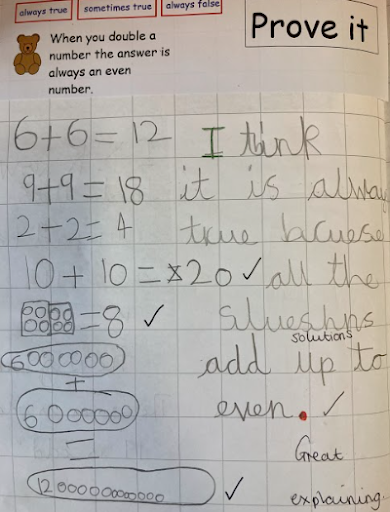 always true
sometimes true
always false
When you double a
number the answer is
always an even
number.
Prove it
6+6=12
9+9=18
2+2=4
10+10=20 ✓
=8 ✓
6000000
+
6000000
=
✓
I think
it is alway
true bcuese
all the
slueshns
solutions
add up to
even. ✓
Great
explaining.